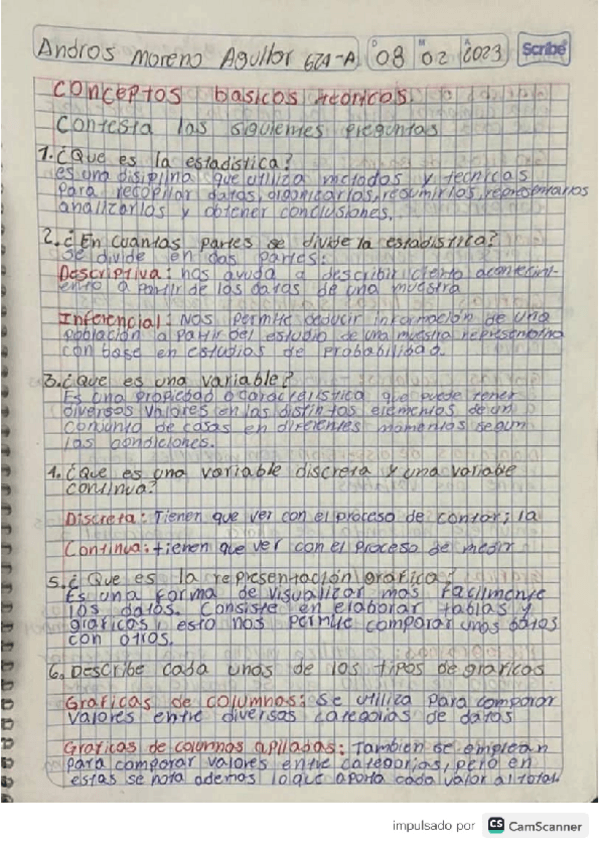 Andros Moreno Aguilar 621-A D 08 M 02 A 2023 Scribe
conceptos basicos teoricos.
Contesta las siguientes preguntas
1. ¿Que es la estadistica?
es una disiplina que utiliza metodos y tecnicas
para recopilar datos, organizarlos, resumirlos, representarlos
analizarlos y obtener conclusiones.
2. ¿En cuantas partes se divide la estadistica?
Se divide en dos partes:
Descriptiva: nos ayuda a describir cierto acontecimi-
ento a partir de los datos de una muestra
Inferencial: Nos permite deducir información de una
población a partir del estudio de una muestra representativa
con base en estudios de probabilidad.
3. ¿Que es una variable?
Es una propiedad o caracteristica que puede tener
diversos valores en las distintas elementos de un
conjunto de casas en diferentes momentos segun
las condiciones.
4. ¿Que es una variable discreta y una variable
continua?
Discreta: Tienen que ver con el proceso de contar; la
Continua: tienen que ver con el proceso de medir
5. ¿Que es la representación grafica?
Es una forma de visualizar mas facilmente
los datos. Consiste en elaborar tablas y
graficos, esto nos permite comparar unos datos
con otros.
6. Describe cada unas de los tipos de graficas
Graficas de columnas: Se utiliza para comparar
valores entre diversas categorias de datos
Graficas de columnas apiladas: Tambien se emplean
para comparar valores entre categorias, pero en
estas se nota ademas lo que aporta cada valor al total.
impulsado por CS CamScanner